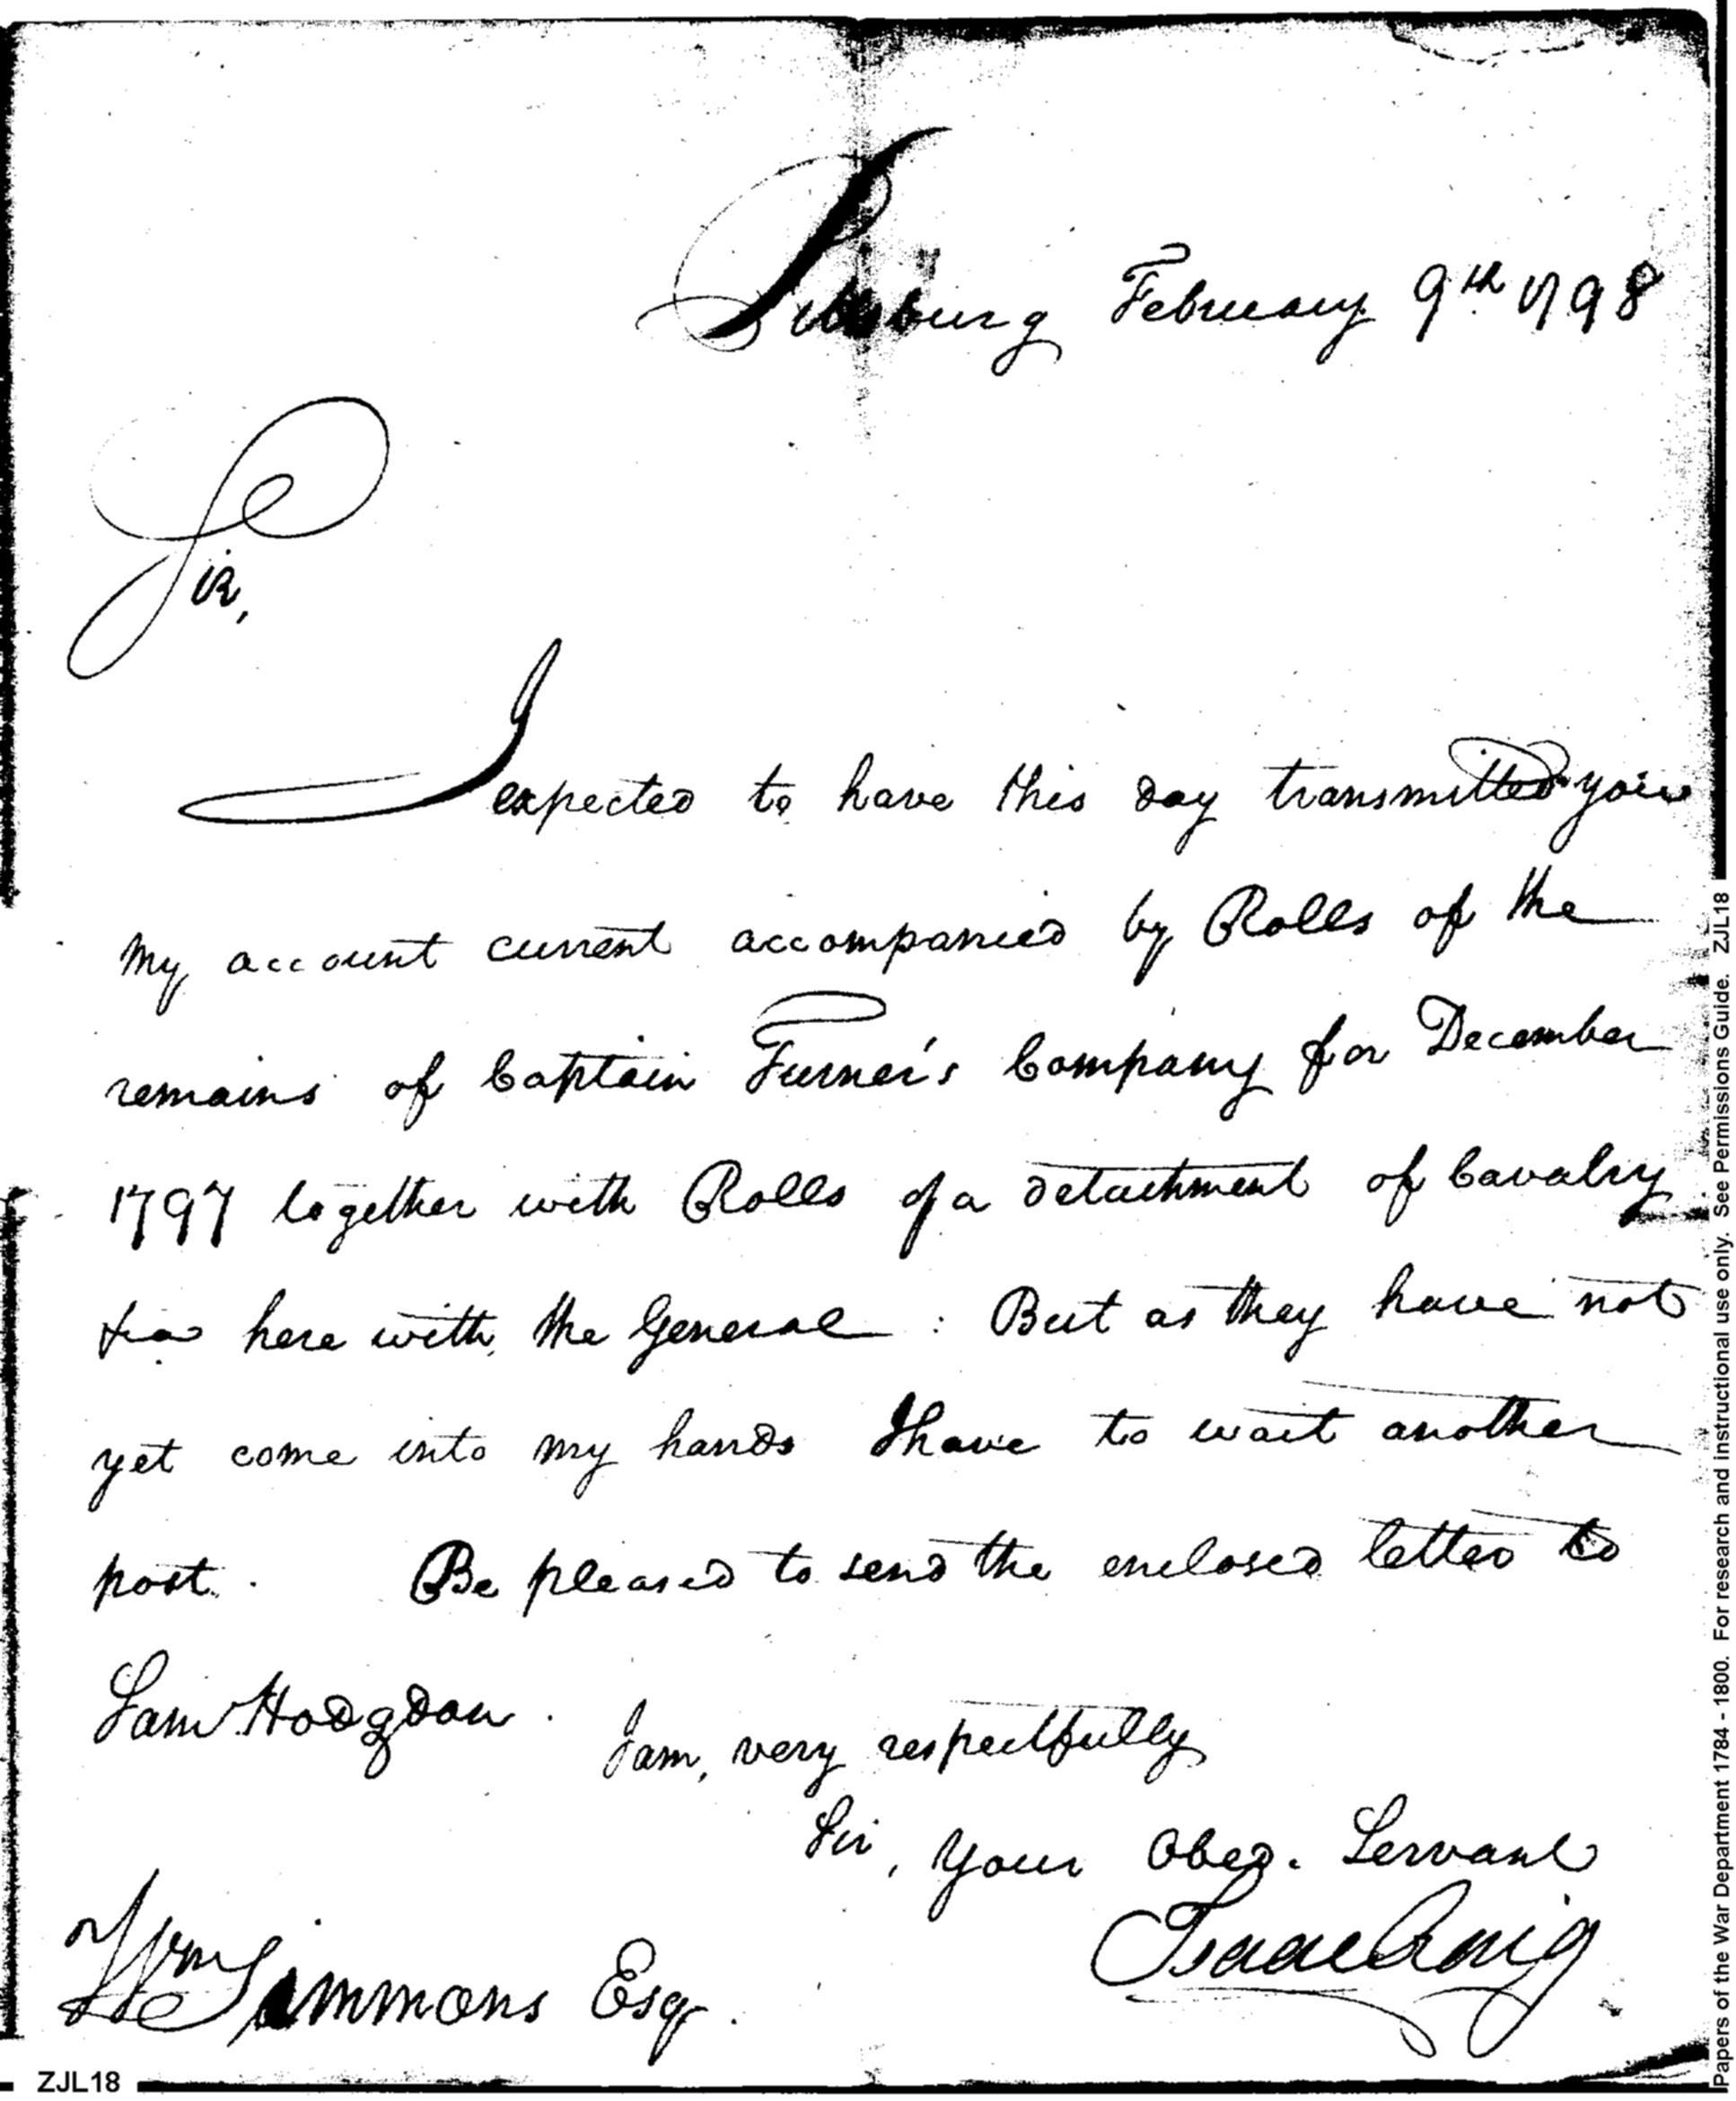 Pittsburg February 9th 1798
Sir,
I expected to have this day transmitted you
my account current accompanied by Rolls of the
remains of Captain Turner's Company for December
1797 together with Rolls of a detachment of Cavalry
here with the General : But as they have not
yet come into my hands I have to wait another
post. Be pleased to send the enclosed letter to
Sam Hodgdon.
I am, very respectfully
Sir, your Obed. Servant
Isaac Craig
Wm Simmons Esq.
ZJL18
Papers of the War Department 1784 - 1800. For research and instructional use only. See Permissions Guide. ZJL18